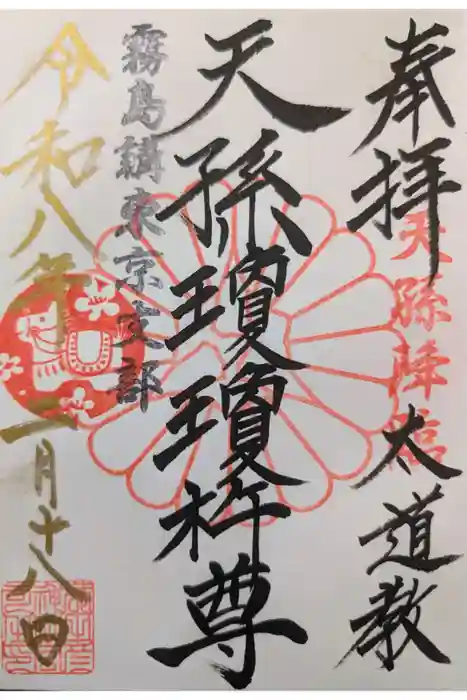 奉拝
天孫降臨
太道教
天孫瓊瓊杵尊
霧島講東京支部
令和八年一月十八日